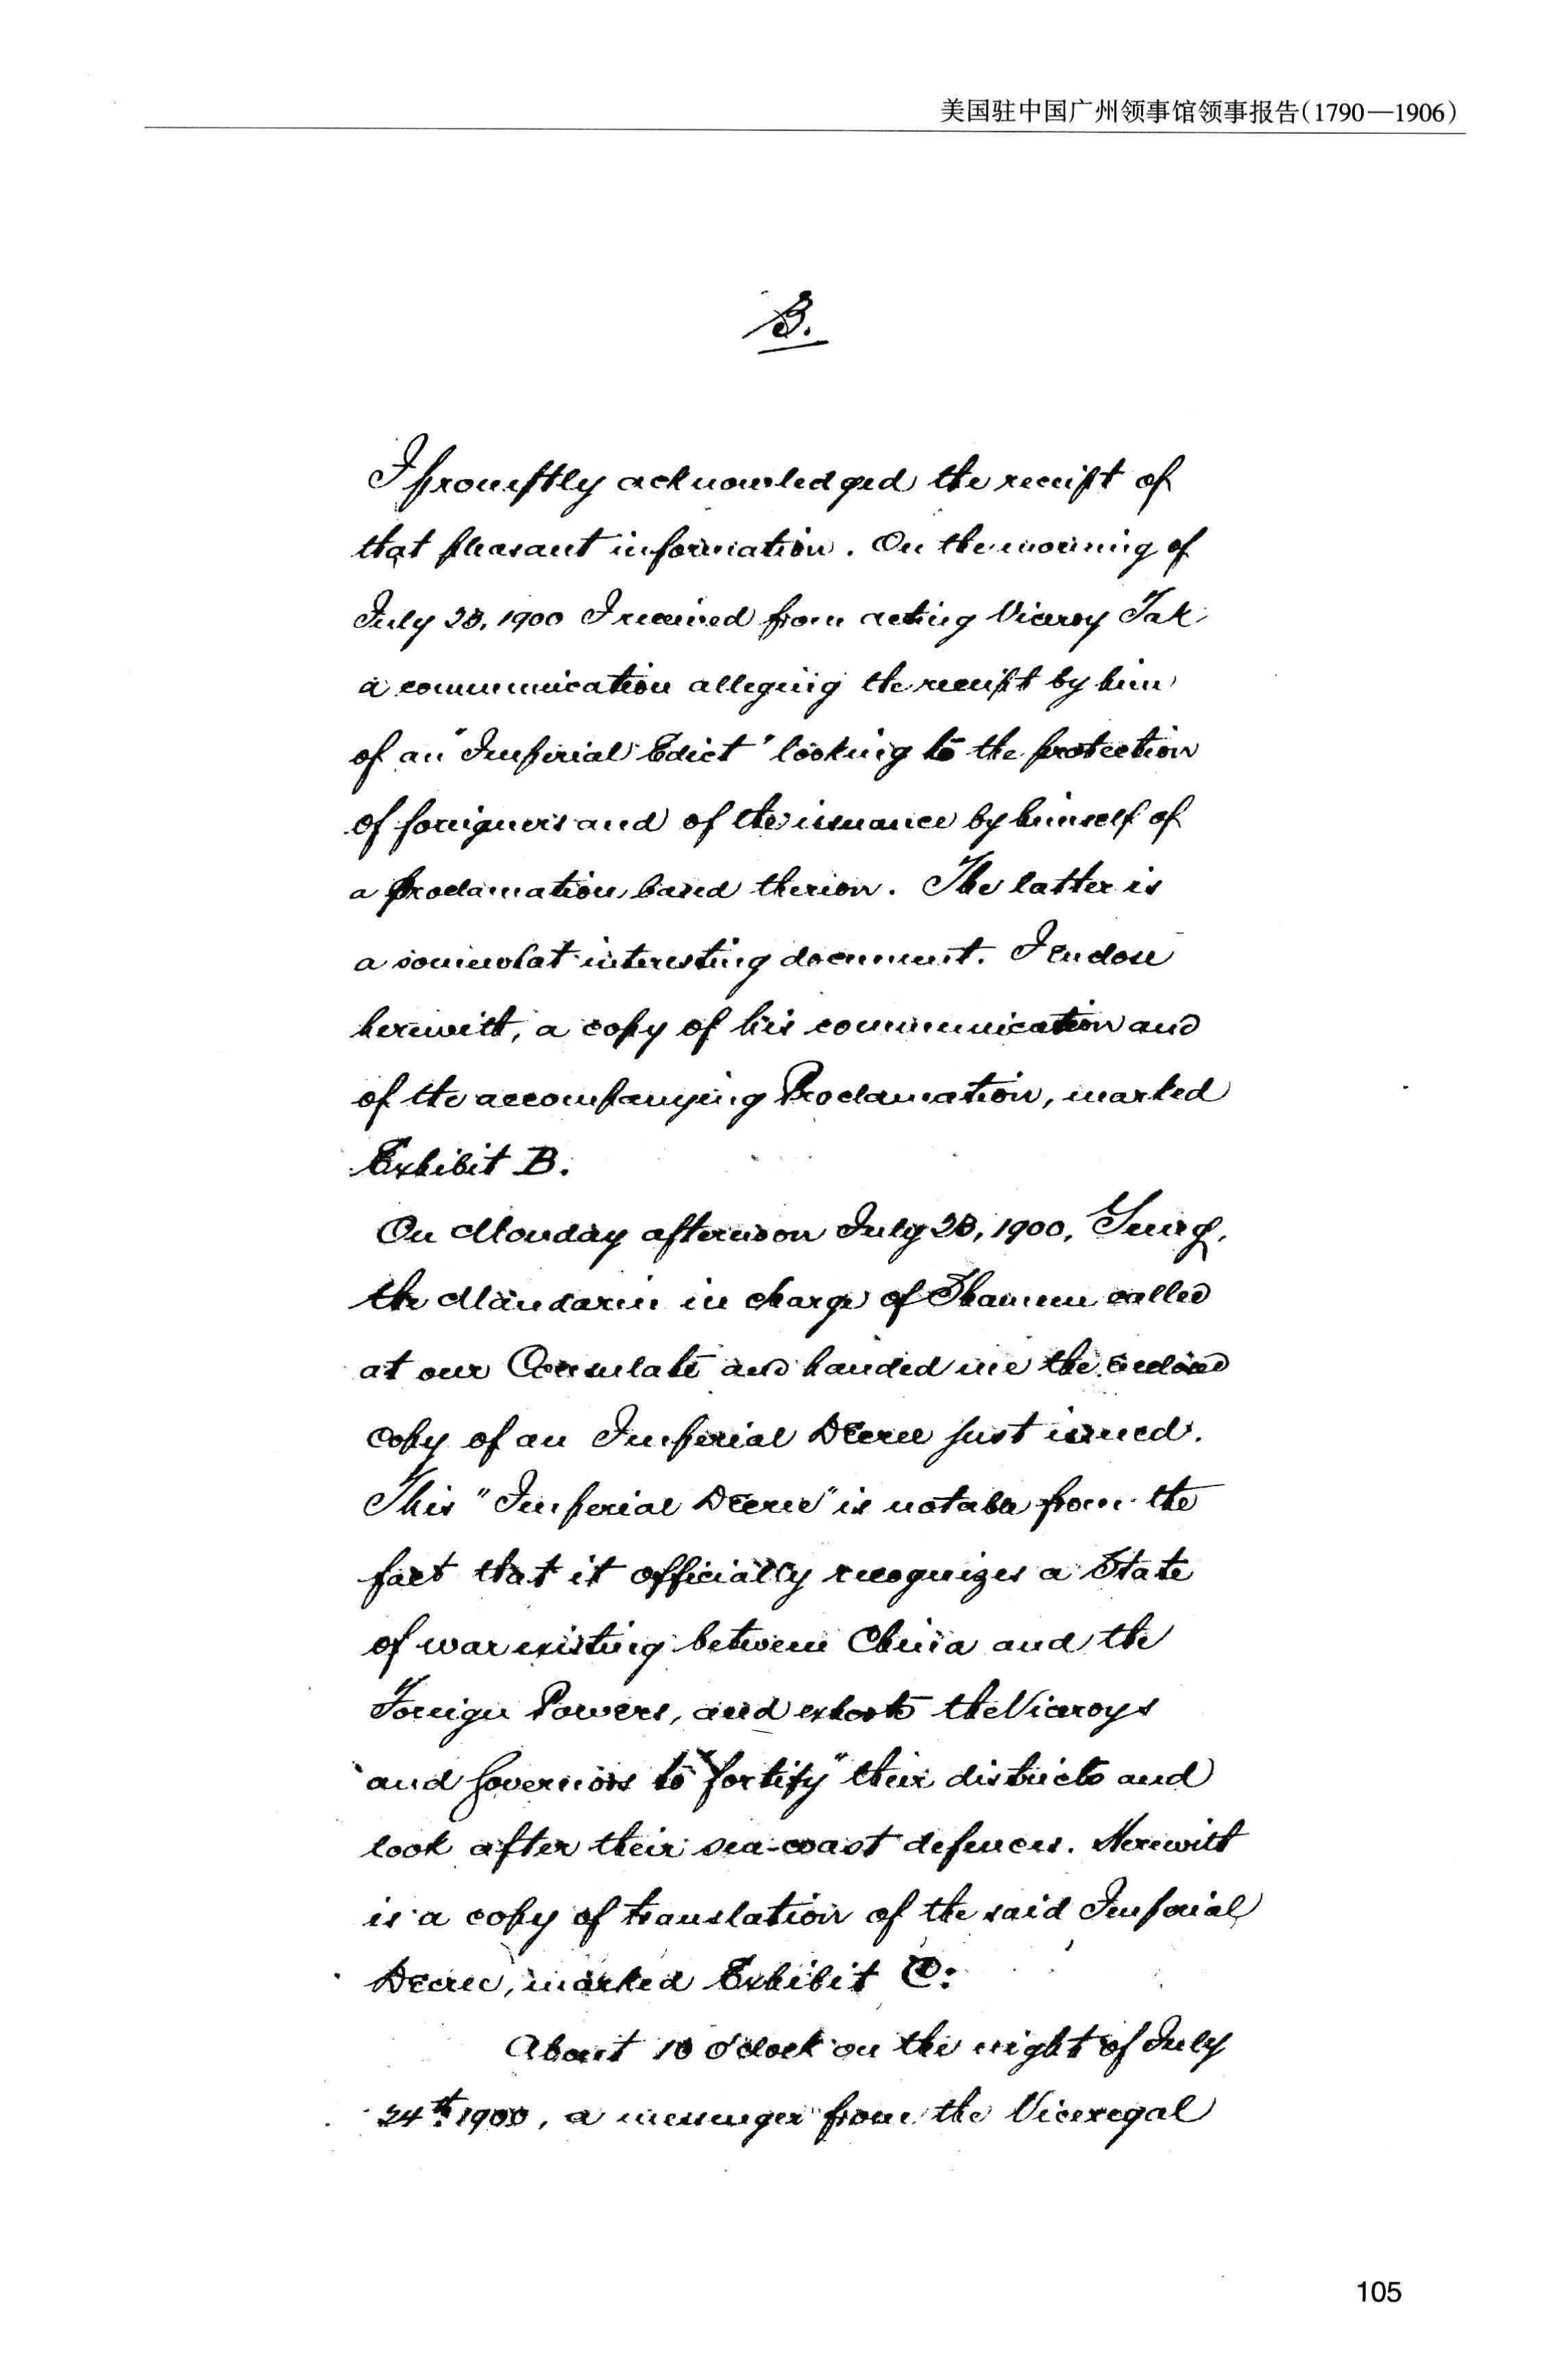 美国驻中国广州领事馆领事报告(1790—1906)
B.
I promptly acknowledged the receipt of
that pleasant information. On the morning of
July 23, 1900 I received from acting Viceroy Tak
a communication alleging the receipt by him
of an "Imperial Edict" looking to the protection
of foreigners and of the issuance by himself of
a Proclamation based thereon. The latter is
a somewhat interesting document. I enclose
herewith, a copy of his communication and
of the accompanying Proclamation, marked
Exhibit B.
On Monday afternoon July 23, 1900,
the Mandarin in charge of Shameen called
at our Consulate and handed me the enclosed
copy of an Imperial Decree just issued.
This "Imperial Decree" is notable from the
fact that it officially recognizes a State
of war existing between China and the
Foreign Powers, and exhorts the Viceroys
and Governors to "fortify" their districts and
look after their sea-coast defences. Herewith
is a copy of translation of the said Imperial
Decree, marked Exhibit C.
About 10 o'clock on the night of July
24th 1900, a messenger from the Viceregal
105